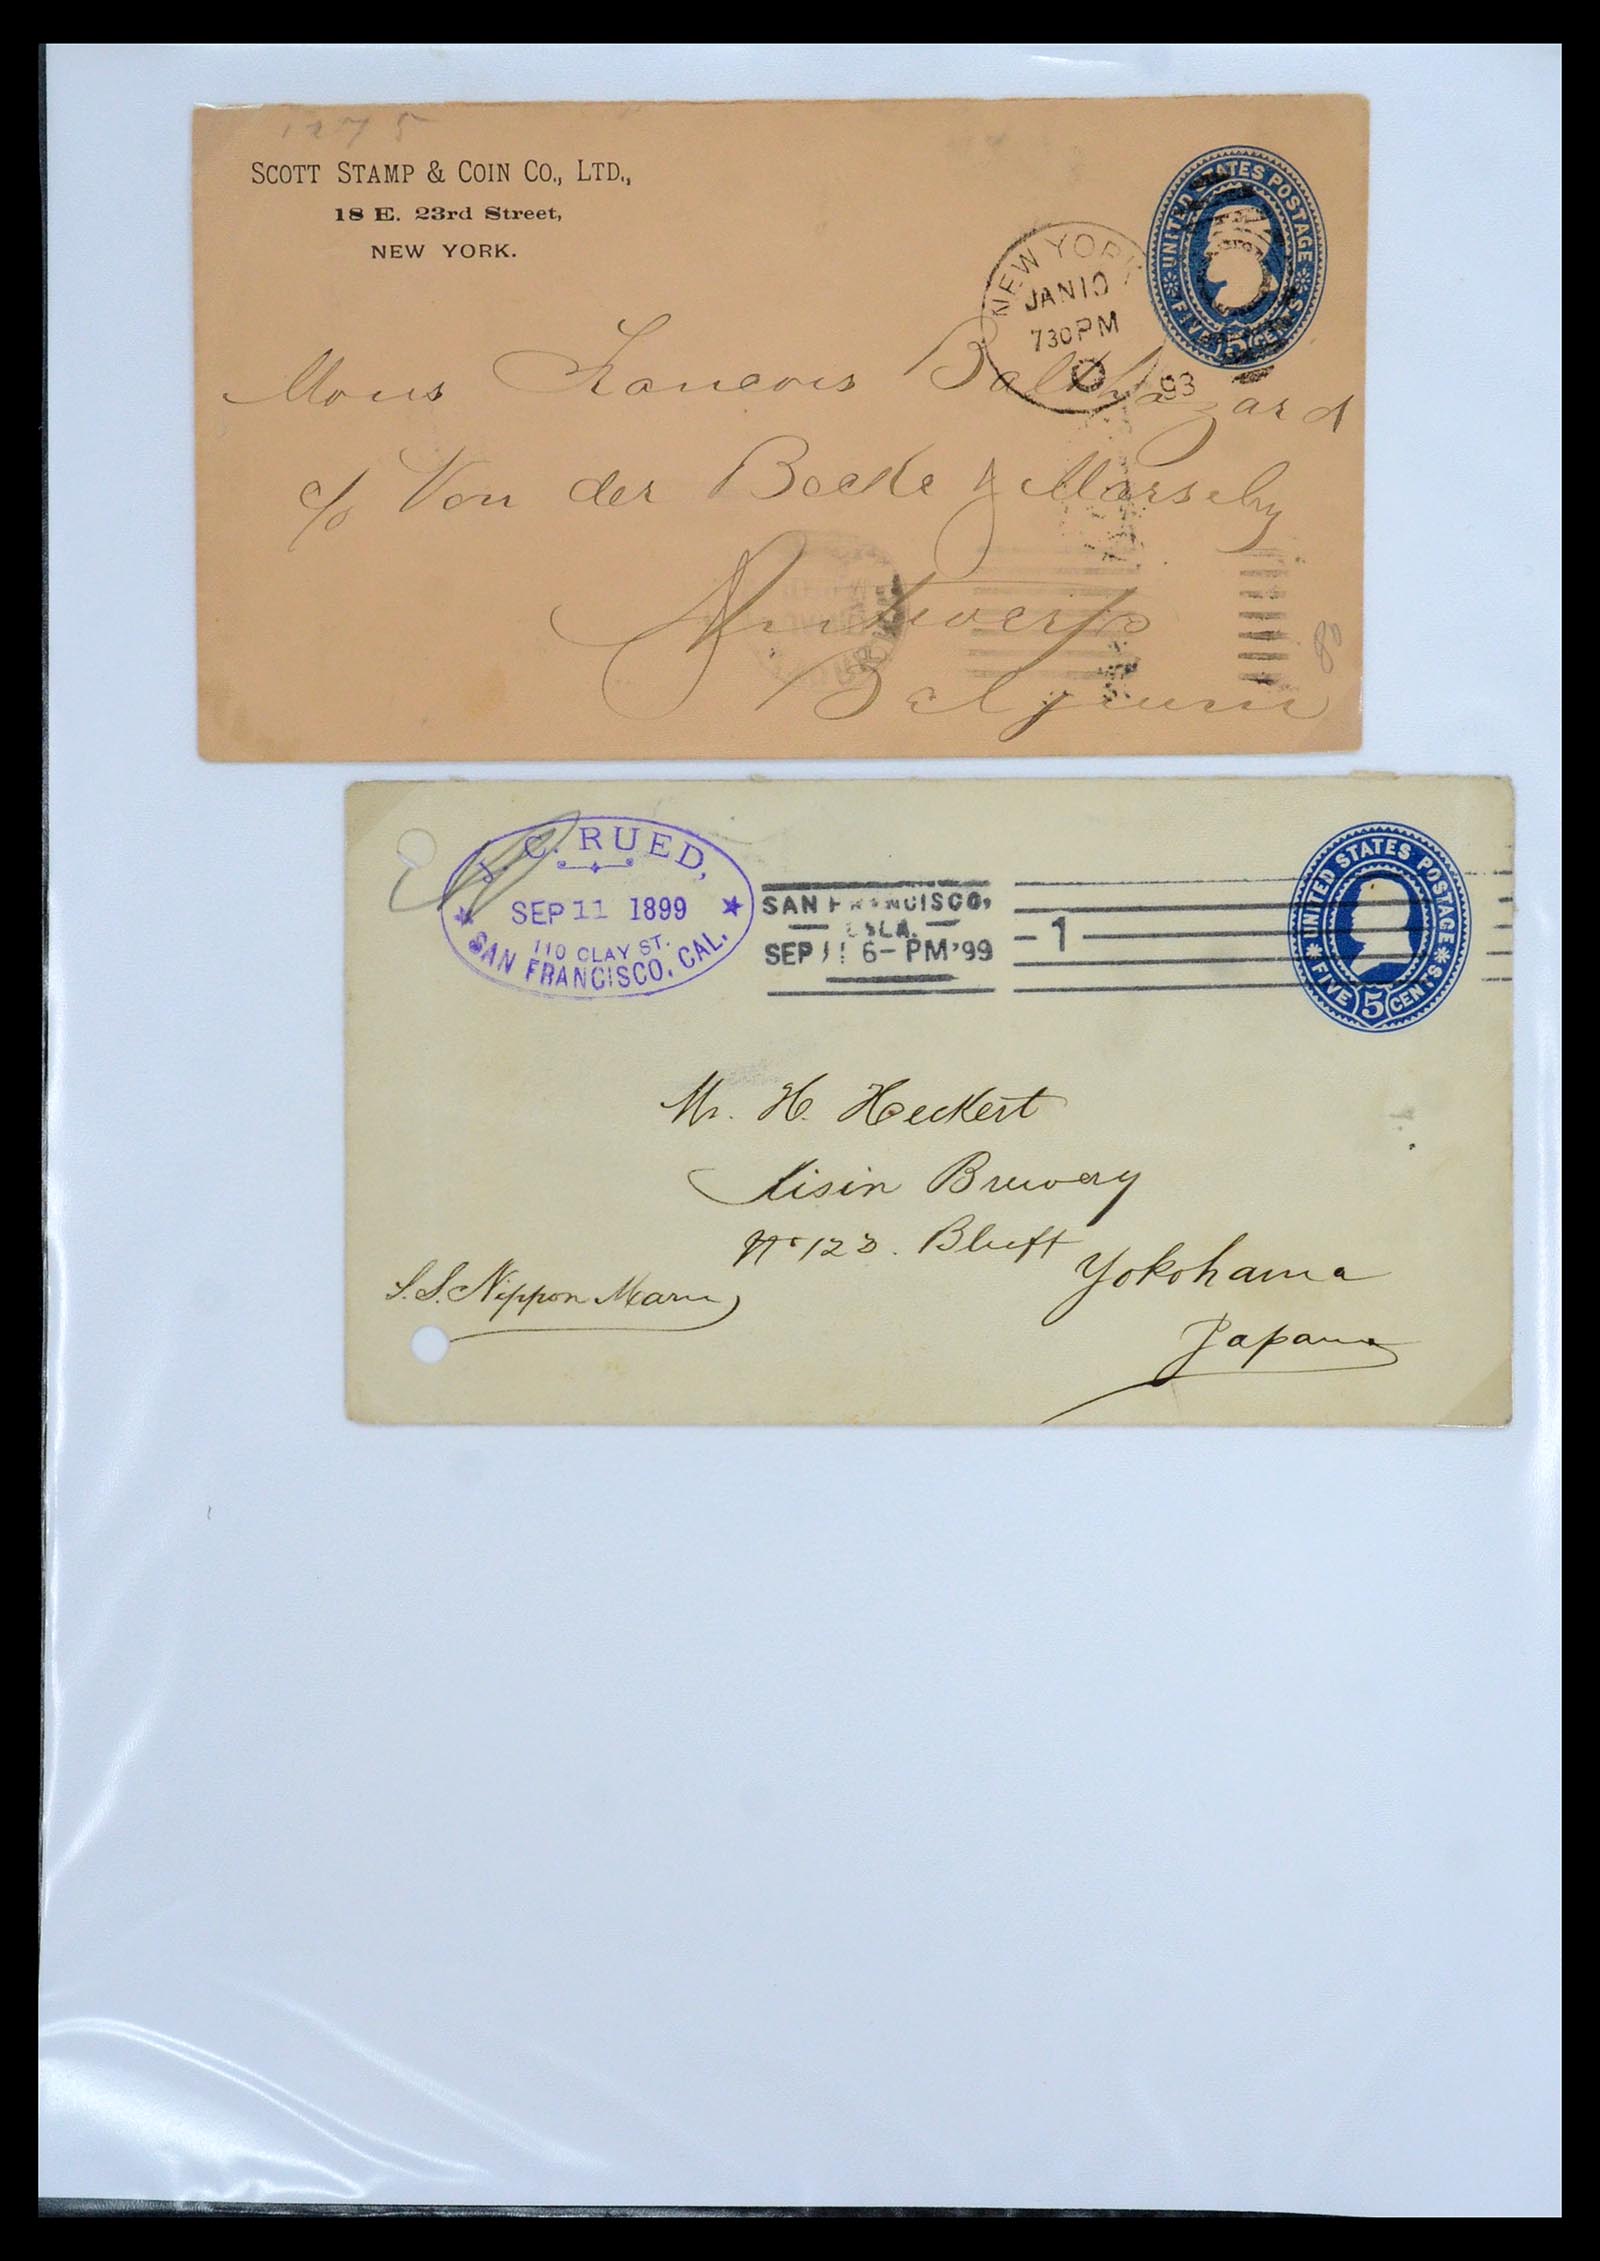 1275
SCOTT STAMP & COIN CO., LTD.,
18 E. 23rd Street,
NEW YORK.
UNITED STATES POSTAGE
FIVE 5 CENTS
NEW YORK
JAN 10
730PM
93
Mons Francois Balthazard
c/o Von der Becke &
Antwerp
Belgium
J. C. RUED,
SEP 11 1899
110 CLAY ST.
SAN FRANCISCO, CAL.
SAN FRANCISCO,
CALA.
SEP 11 6-PM '99
1
UNITED STATES POSTAGE
FIVE 5 CENTS
Mr. H. Heckert
Kisin Brewery
No 123. Bluff
Yokohama
S.S. Nippon Maru
Japan